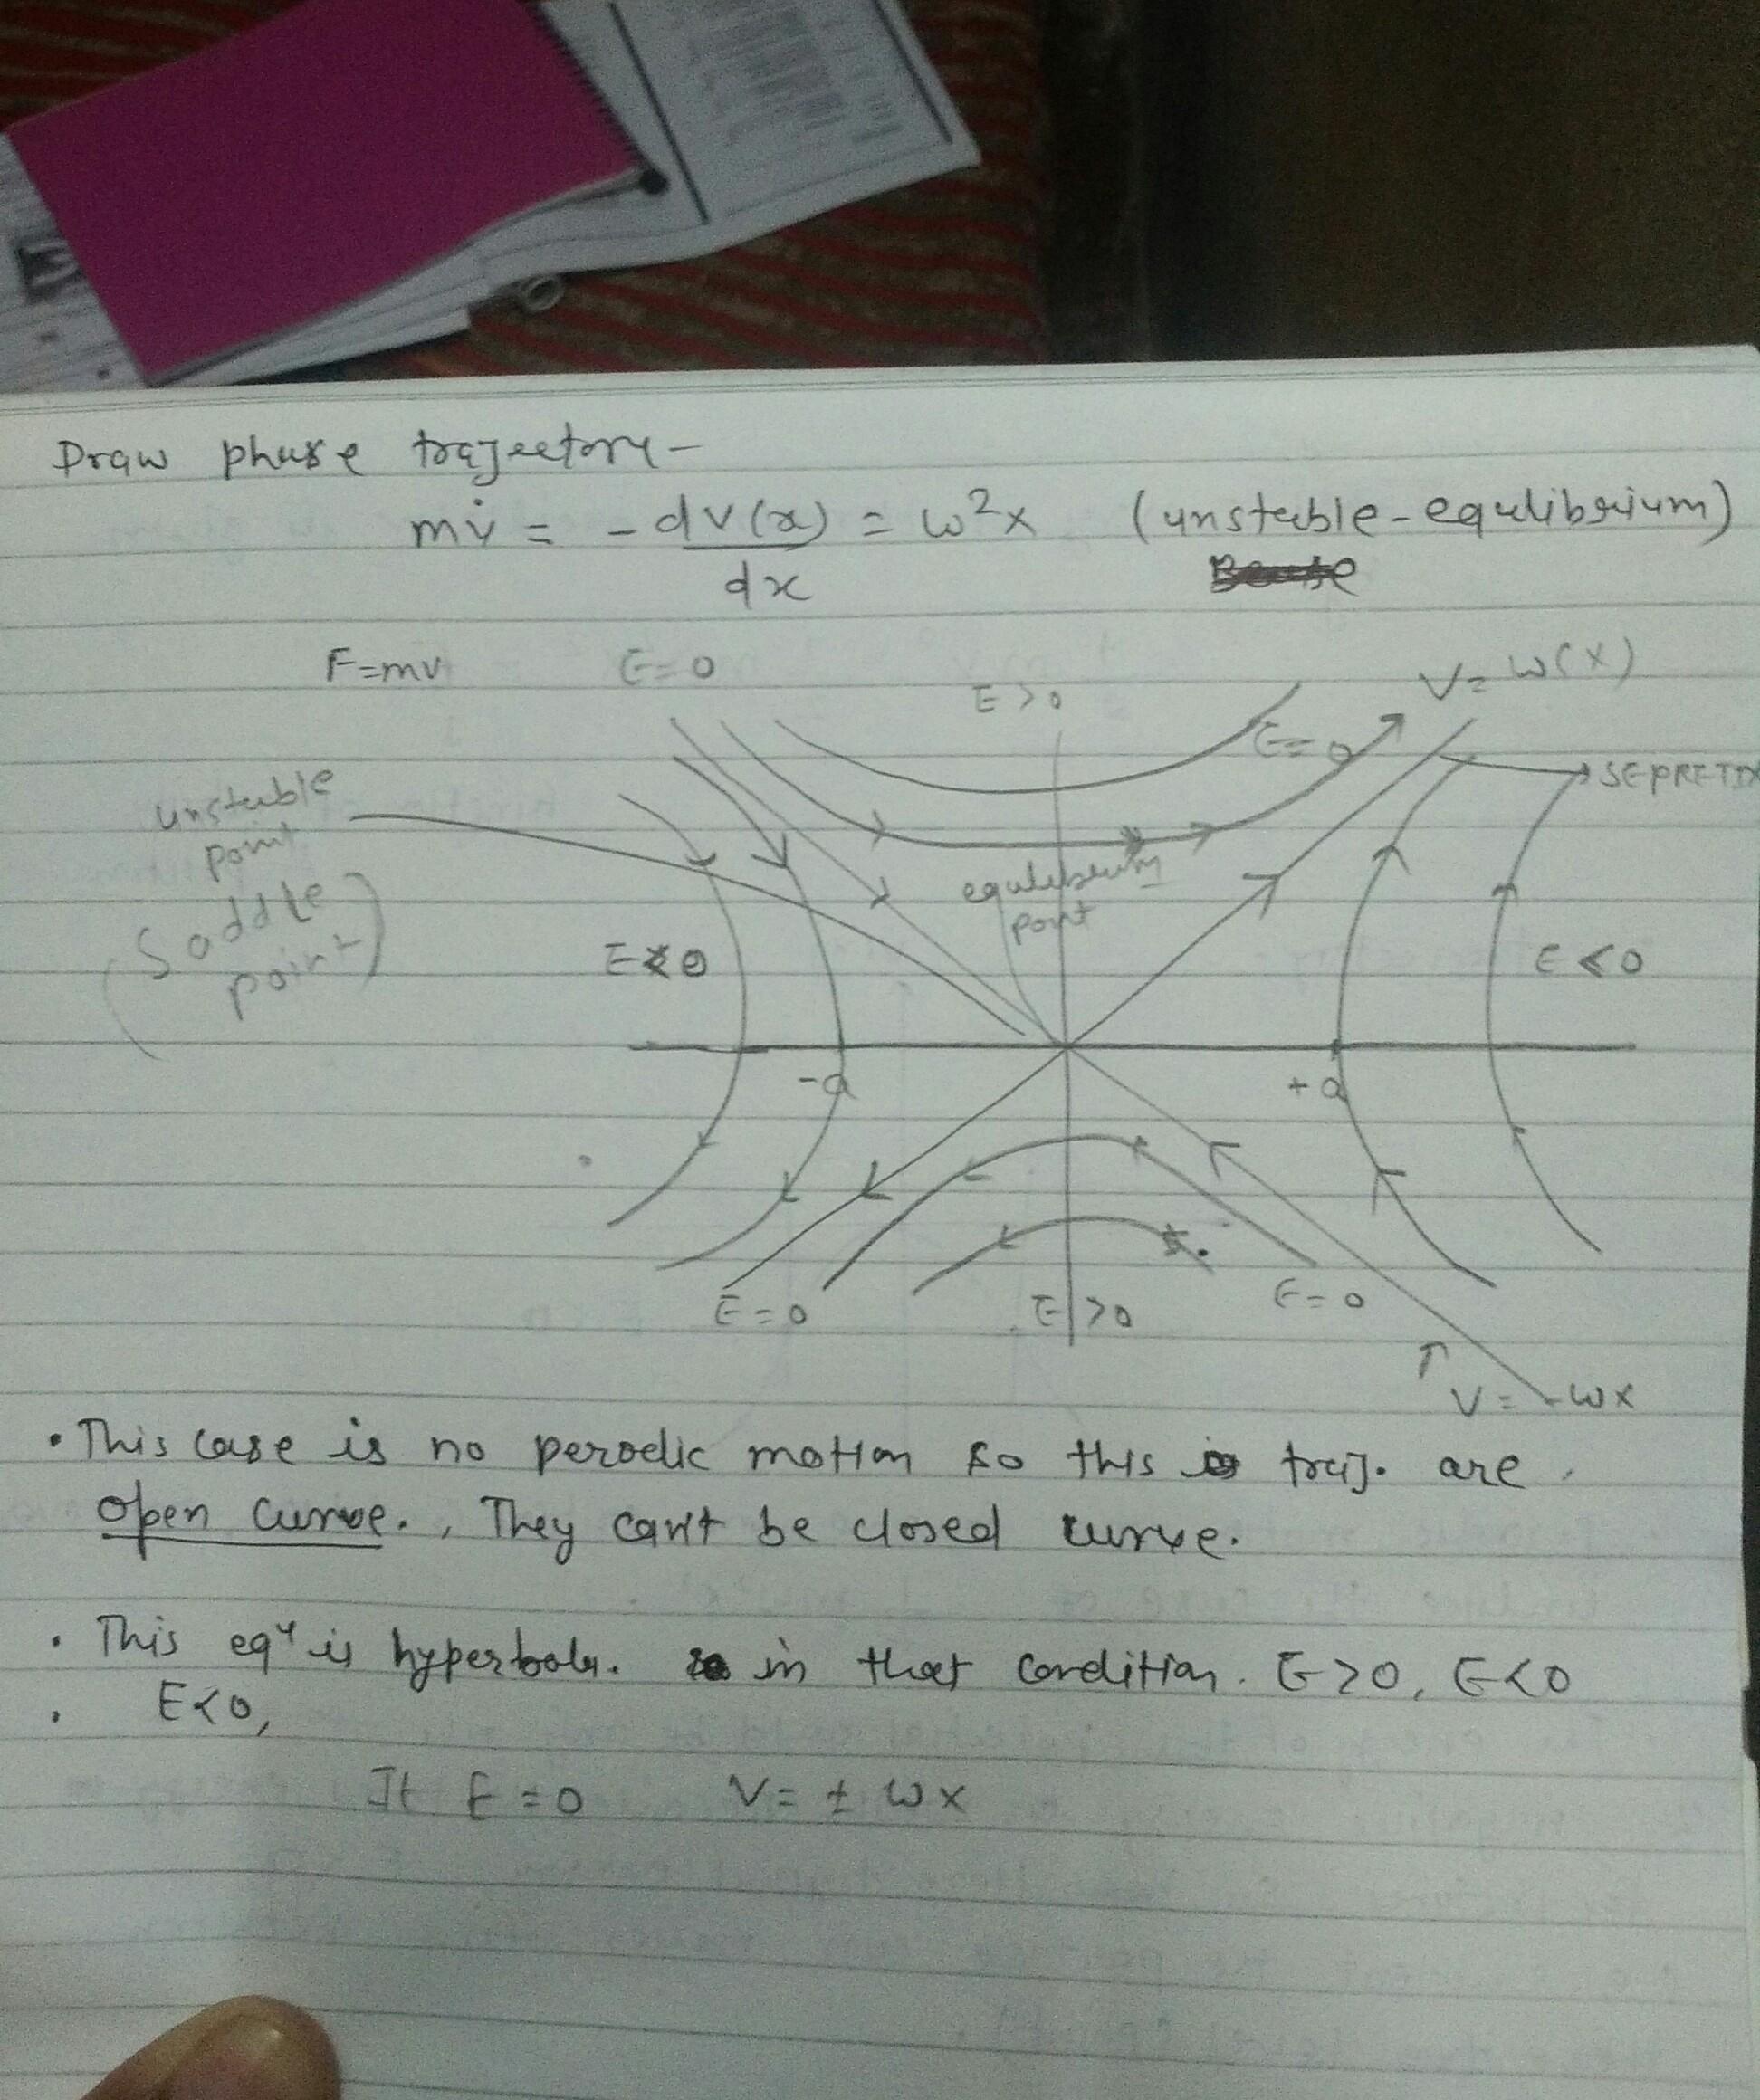 Draw phase trajectory -
mv̇ = - dV(x) = ω²x (unstable - equlibrium)
dx
F=mv E=0 E>0 V= ω(x)
E=0
unstable point SEPRETIX
(Saddle point)
equlibrium point
E<0 E<0
-a +a
E=0 E>0 E=0
V= -ωx
• This case is no perodic motion so this traj. are
open curve., They can't be closed curve.
• This eqⁿ is hyperbola. in that condition. E>0, E<0
• E<0,
If E=0 V= ± ωx